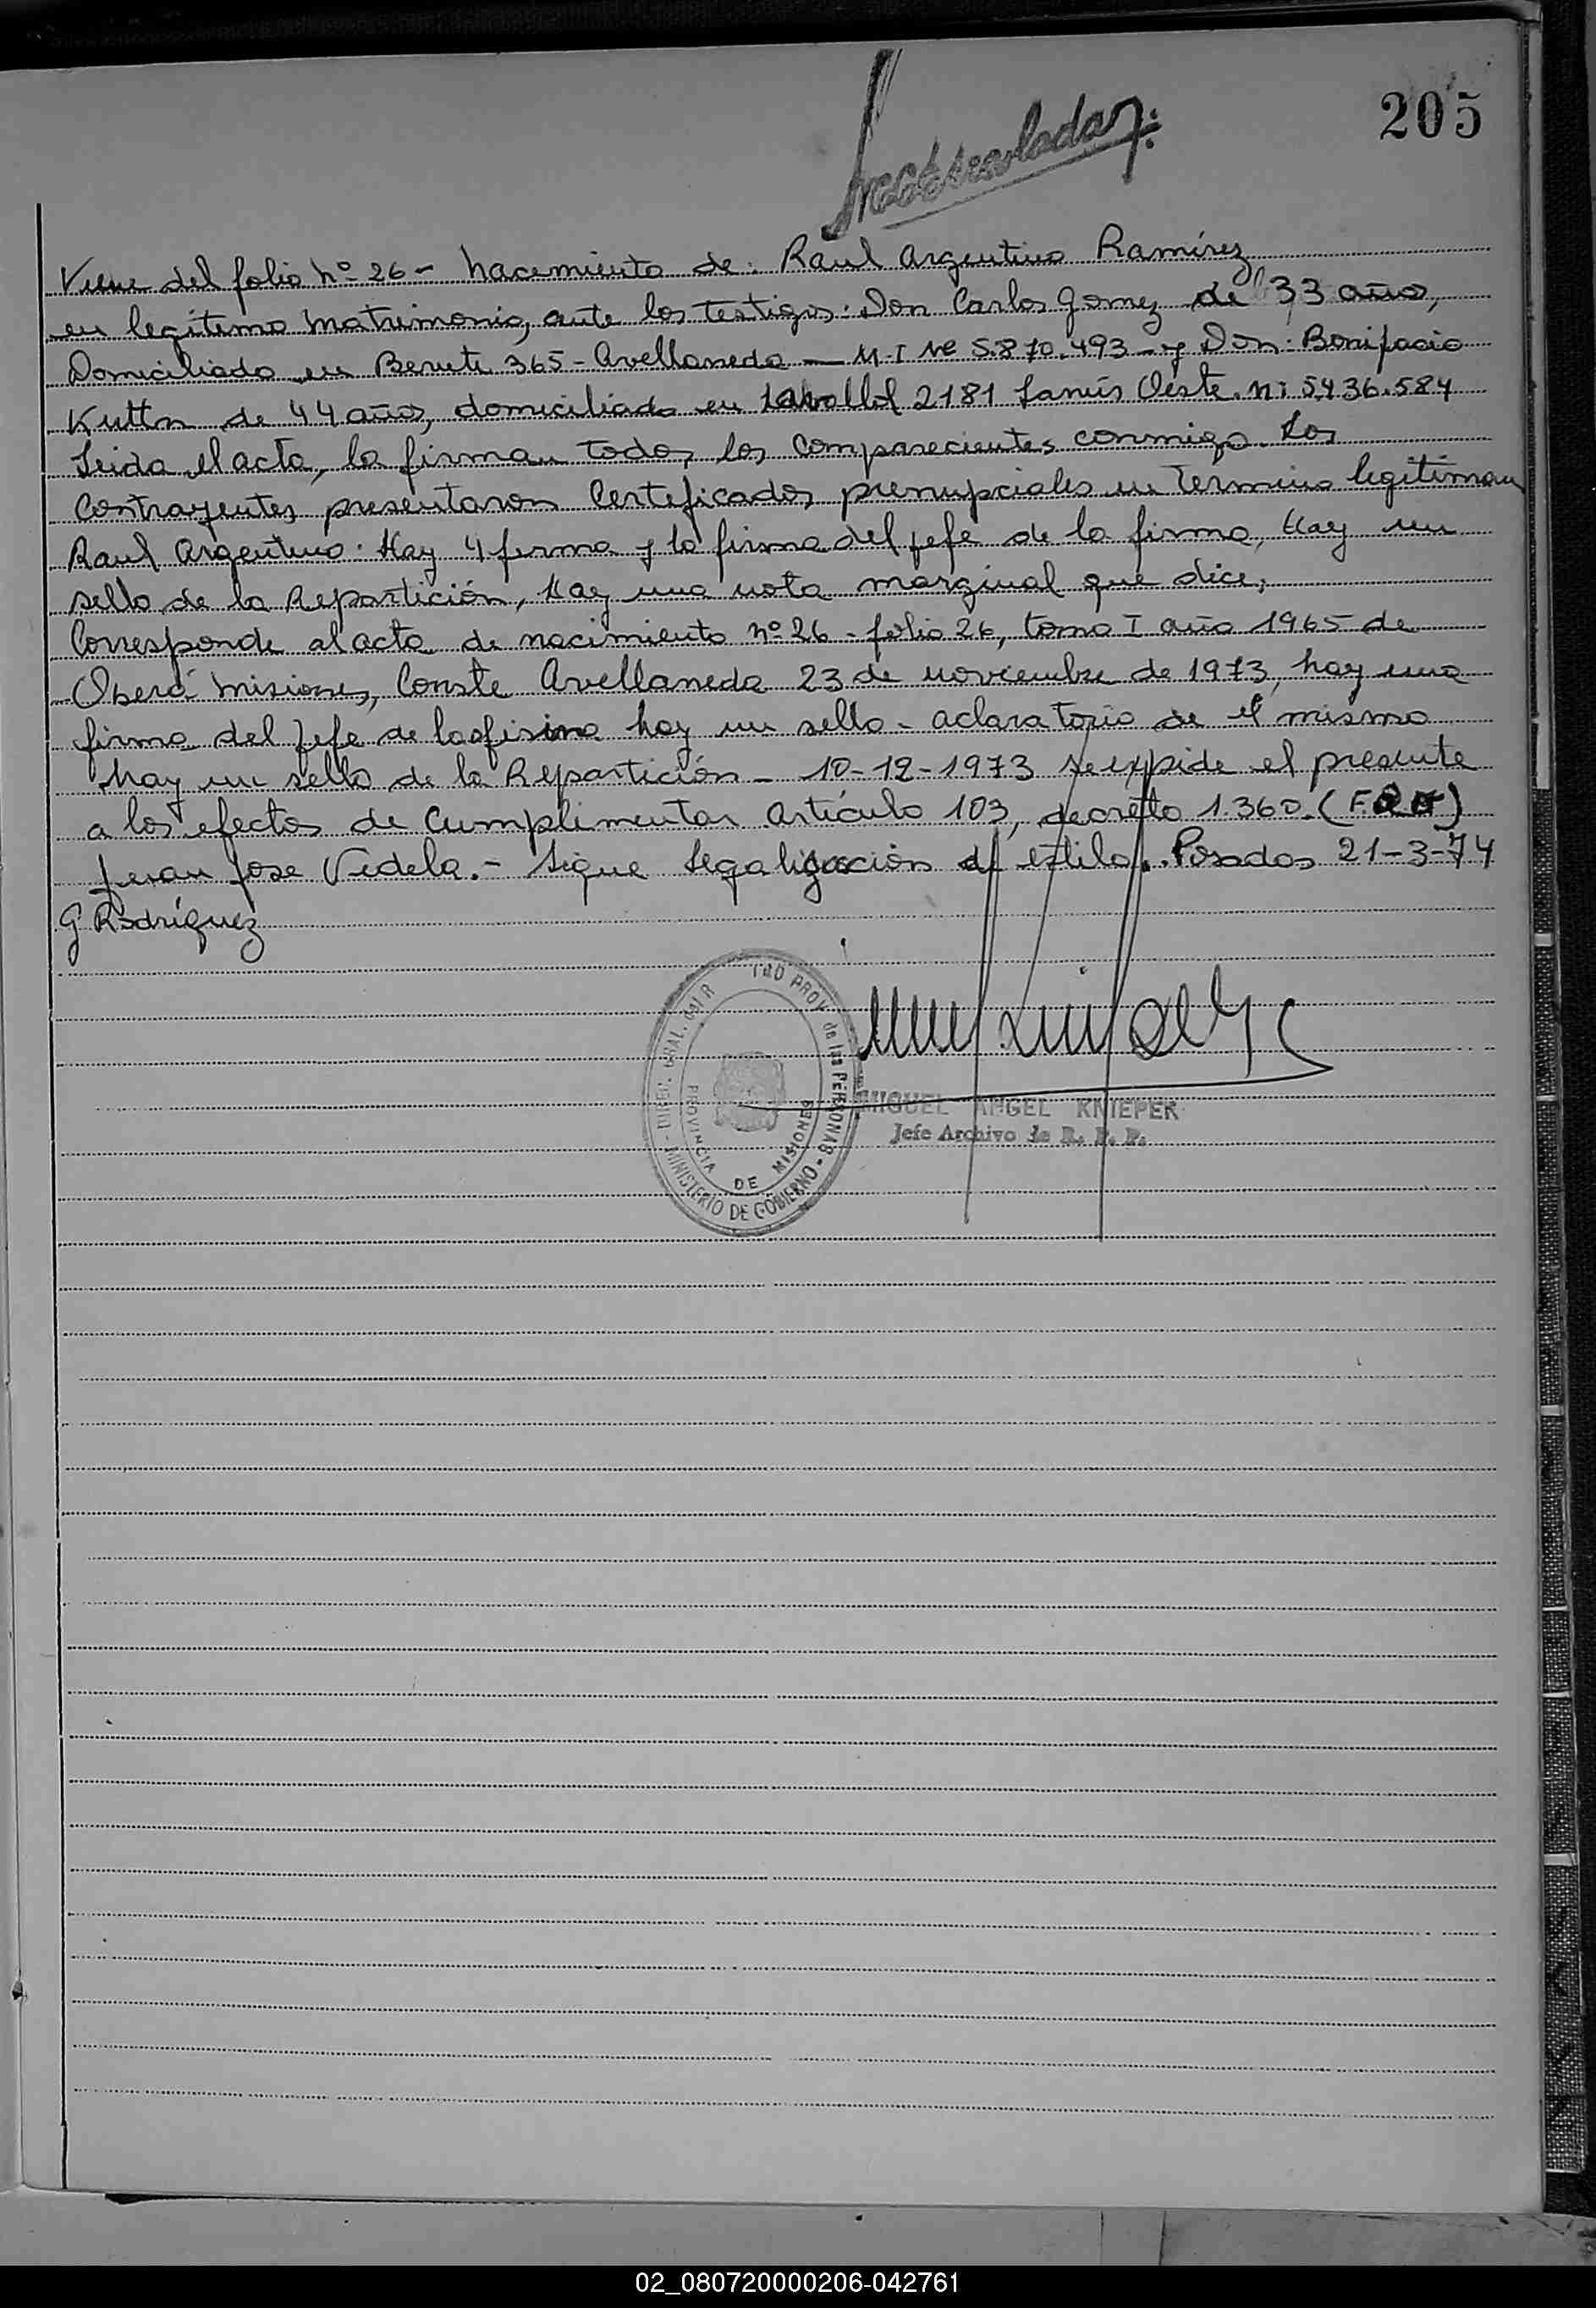 205
Viene del folio nº 26 - nacimiento de: Raul Argentino Ramírez
en legítimo matrimonio, ante los testigos: Don Carlos Gomez de 33 años,
Domiciliado en Berute 365 - Avellaneda - M.I Nº 5.870.493 - y Don: Bonifacio
Kuttn de 44 años, domiciliado en Lavallol 2181 Lanús Oeste. ni 5.436.584
Leida el acta, la firman todos los comparecientes conmigo. Los
contrayentes presentaron Certificados prenupciales en Termino legitiman
Raul Argentino. Hay 4 firma y la firma del jefe de la firma, Hay un
sello de la Repartición, Hay una nota marginal que dice,
Corresponde al acta de nacimiento nº 26 - folio 26, tomo I año 1965 de
Oberá Misiones, Conste Avellaneda 23 de noviembre de 1973, hay una
firma del Jefe de la ofisina hay un sello - aclaratorio de el mismo
hay un sello de la Repartición - 10-12-1973 se expide el presente
a los efectos de Cumplimentar Artículo 103, decreto 1.360. (F.
Juan Jose Videla. - Sigue Legalización de estilo. Posadas 21-3-74
G Rodríguez
DIREC. GRAL. del R PROV de las PERSONAS - MINISTERIO DE GOBIERNO -
PROVINCIA DE MISIONES
MIGUEL ANGEL KNIEPER
Jefe Archivo de R. P. P.
02_080720000206-042761